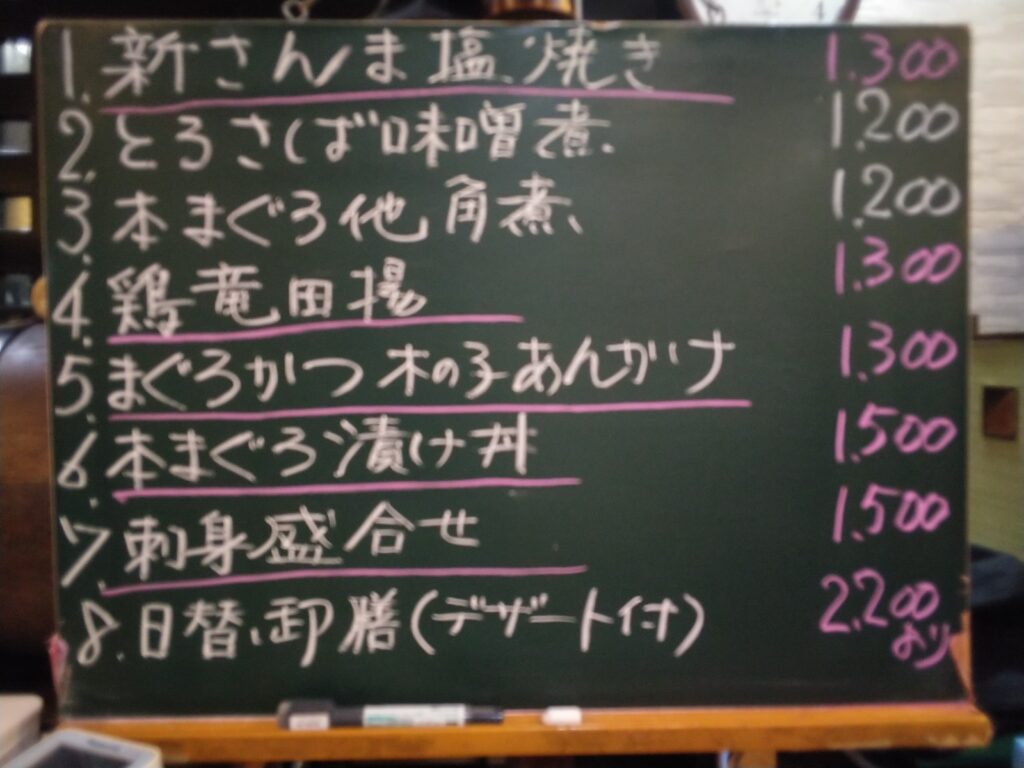 1. 新さんま塩焼き 1.300
2. とろさば味噌煮 1.200
3. 本まぐろ他角煮 1.200
4. 鶏竜田揚 1.300
5. まぐろかつ木の子あんかけ 1.300
6. 本まぐろ漬け丼 1.500
7. 刺身盛合せ 1.500
8. 日替、御膳(デザート付) 2.200
より